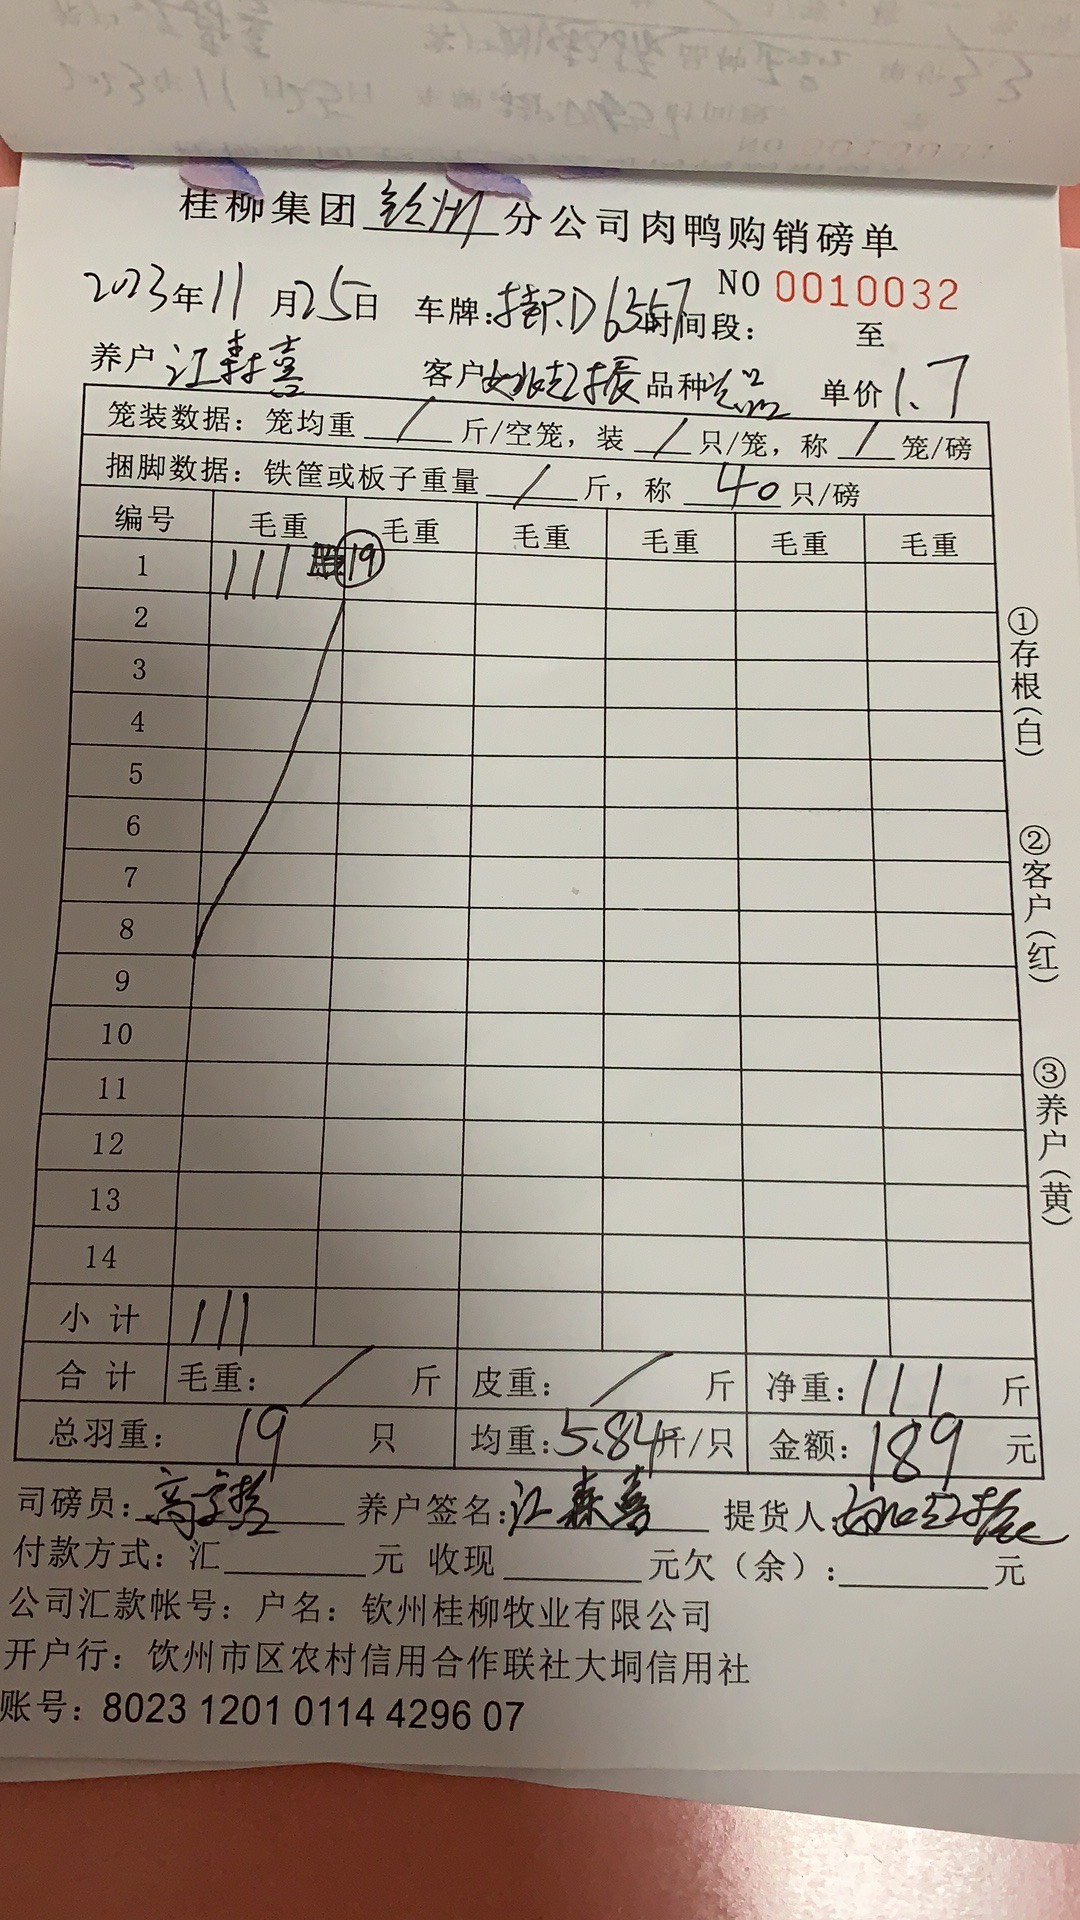 桂柳集团钦州分公司肉鸭购销磅单
NO 0010032
2023年11月25日 车牌:桂R.D6357 时间段: 至
养户 江森喜 客户 品种 单价1.7
笼装数据: 笼均重 / 斤/空笼, 装 / 只/笼, 称 / 笼/磅
捆脚数据: 铁筐或板子重量 / 斤, 称 40 只/磅
编号 毛重 毛重 毛重 毛重 毛重 毛重
1 111 19
2
3
4
5
6
7
8
9
10
11
12
13
14
小计 111
合计 毛重: / 斤 皮重: / 斤 净重: 111 斤
总羽重: 19 只 均重: 5.84斤/只 金额: 189 元
司磅员: 养户签名: 江森喜 提货人:
付款方式: 汇 元 收现 元欠(余): 元
公司汇款帐号: 户名: 钦州桂柳牧业有限公司
开户行: 钦州市区农村信用合作联社大垌信用社
账号: 8023 1201 0114 4296 07
①存根(白)
②客户(红)
③养户(黄)